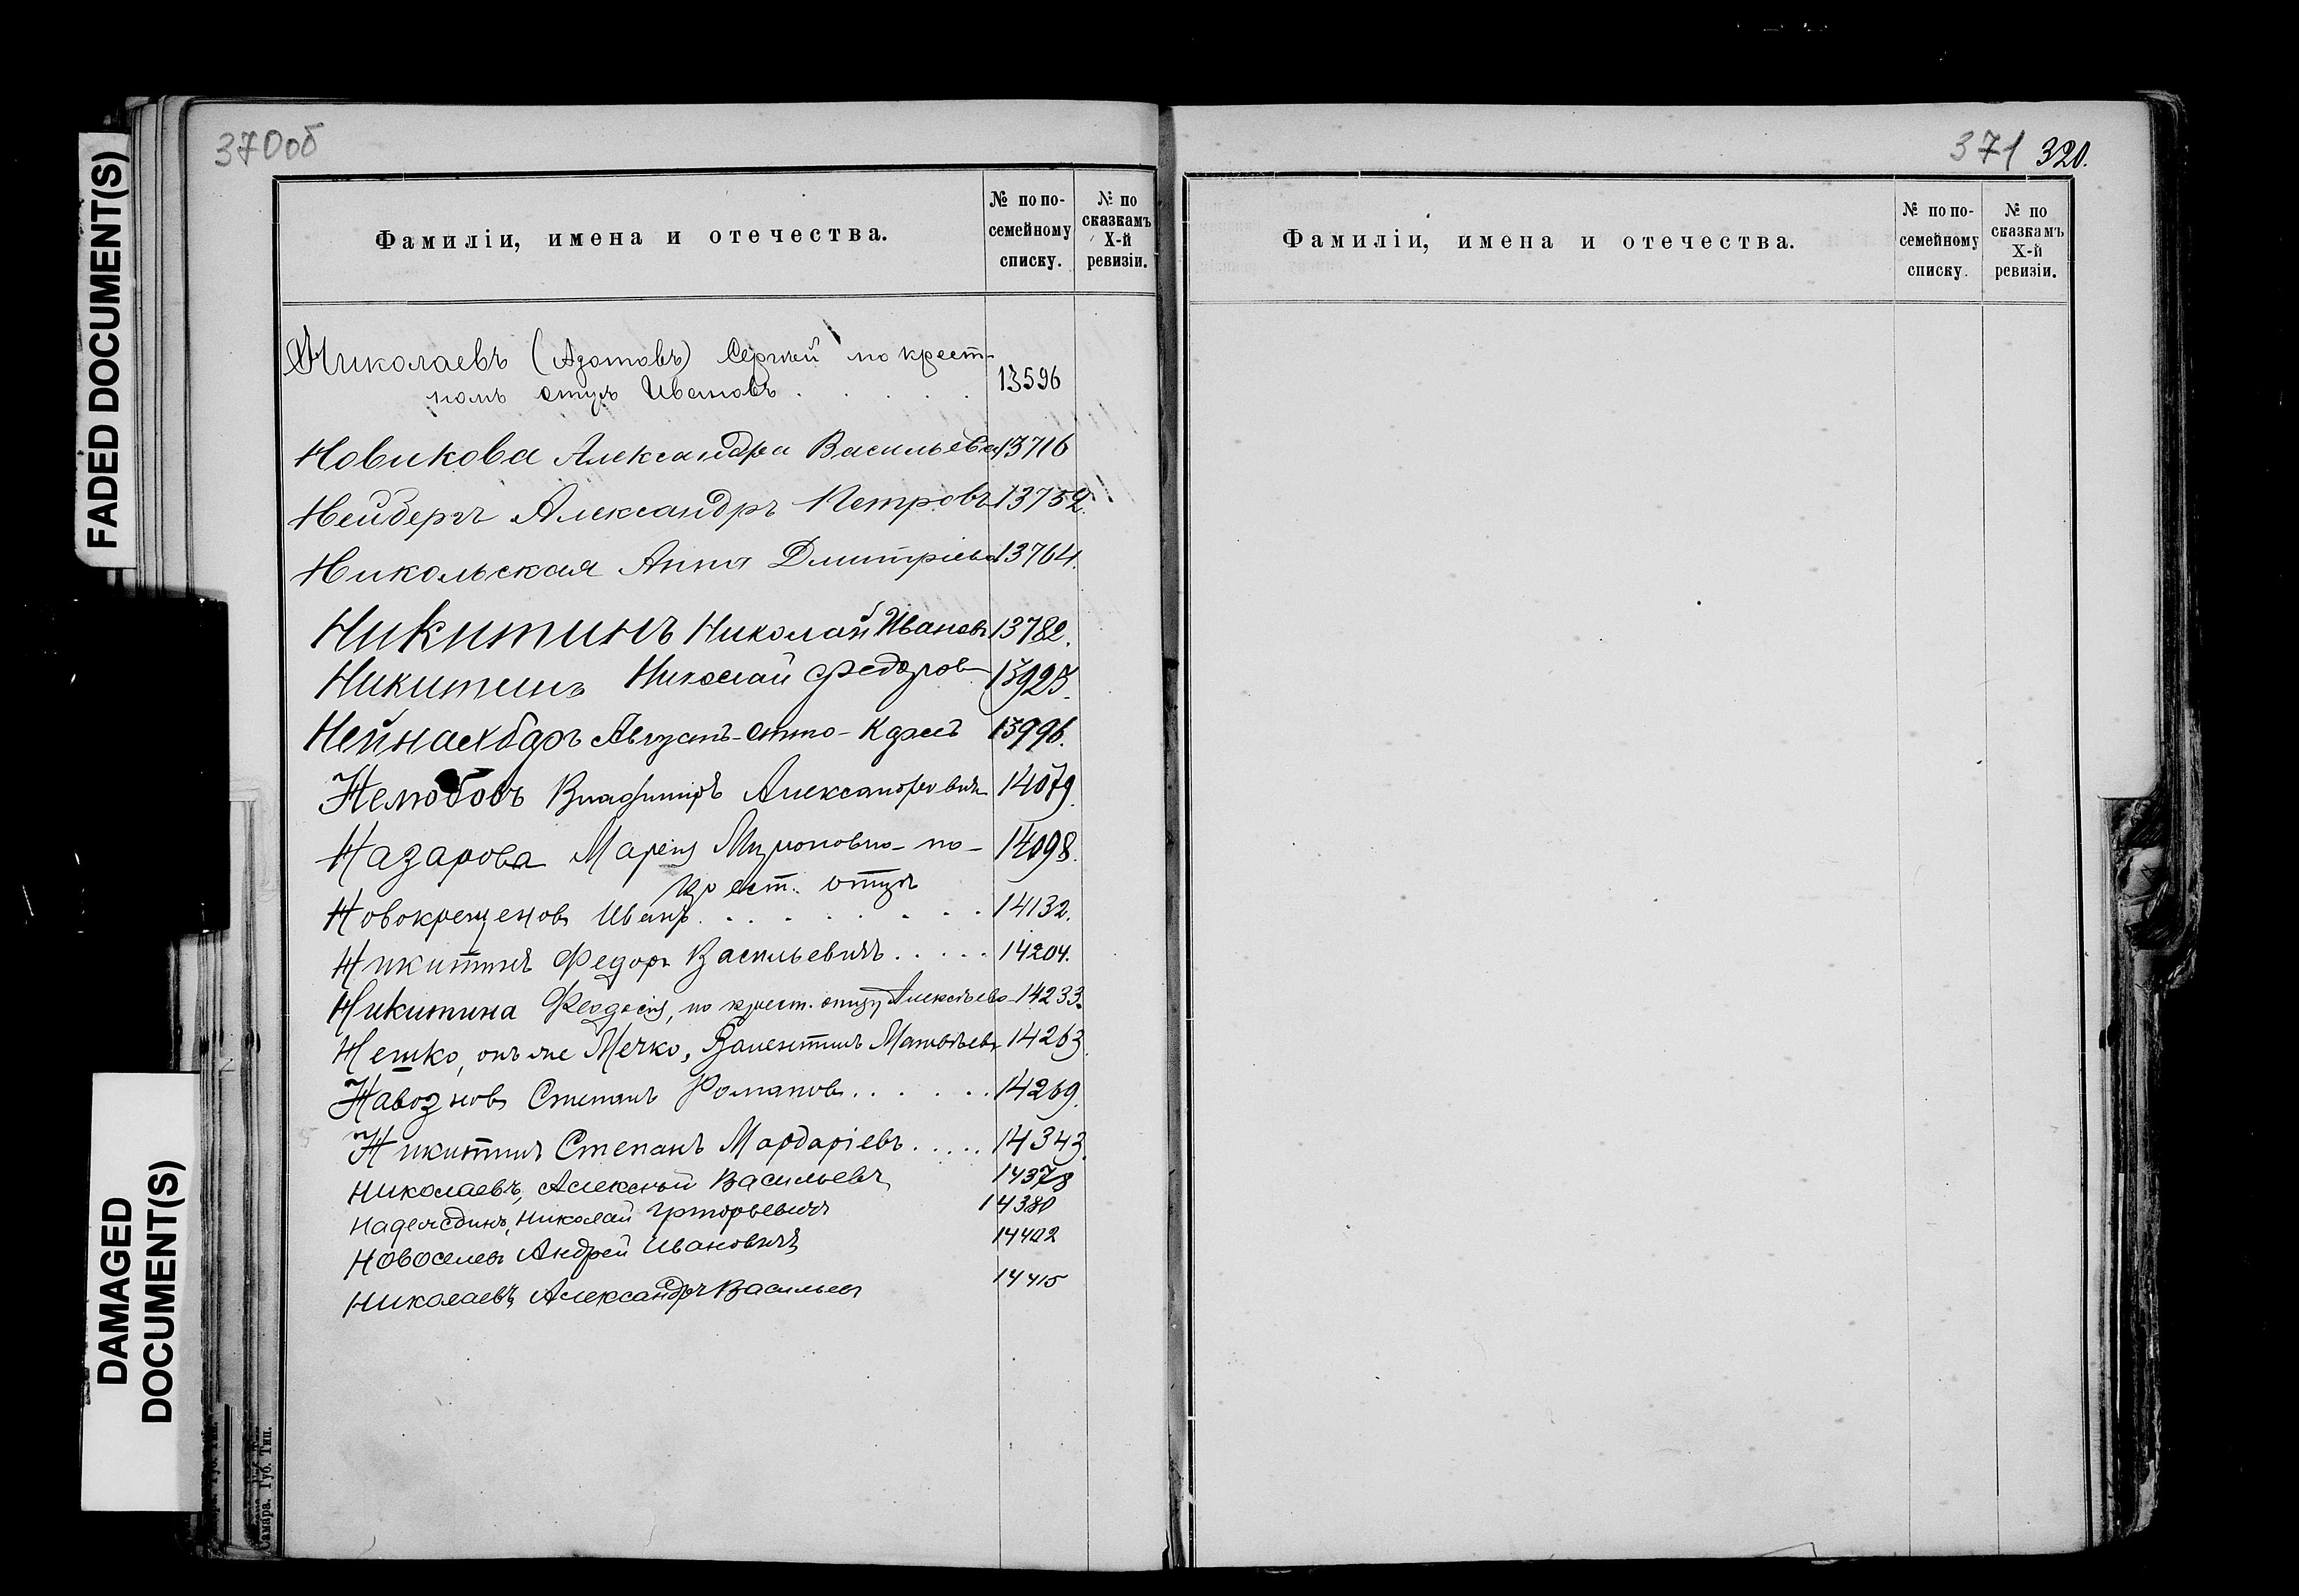 FADED DOCUMENT(S)
DAMAGED
DOCUMENT(S)
370об
Фамиліи, имена и отечества.
№ по по-
семейному
списку.
№ по
сказкамъ
X-й
ревизіи.
Николаевъ (Азотовъ) Сергѣй по крест-
номъ отцѣ Ивановъ . . . . . 13596
Новикова Александра Васильева 13716
Нейбергъ Александръ Петровъ 13752.
Никольская Анна Дмитріева 13764.
Никитинъ Николай Ивановъ 13782.
Никитинъ Николай Федоров 13925.
Августъ-Отто-Карлъ 13996.
Нелюбовъ Владиміръ Александровичъ 14079.
Назарова Марія Мироновна по 14098.
крест. отцу
Новокрещеновъ Иванъ . . . . . . . . 14132.
Никитинъ Федоръ Васильевичъ . . . . . 14204.
Никитина Феодосія, по крест. отцу Алексѣева 14233.
Нешко, онъ же Мечко, Валентинъ Матвѣевъ 14263.
Навозновъ Степанъ Романовъ . . . . . . 14269.
Никитинъ Степанъ Мардаріевъ . . . . . 14343.
Николаевъ, Алексѣй Васильевъ 14378
Надеждинъ, Николай Григорьевичъ 14380
Новоселовъ Андрей Ивановичъ 14402
Николаевъ Александръ Васильев 14415
Самара. Губ. Тип.
371 320.
Фамиліи, имена и отечества.
№ по по-
семейному
списку.
№ по
сказкамъ
X-й
ревизіи.